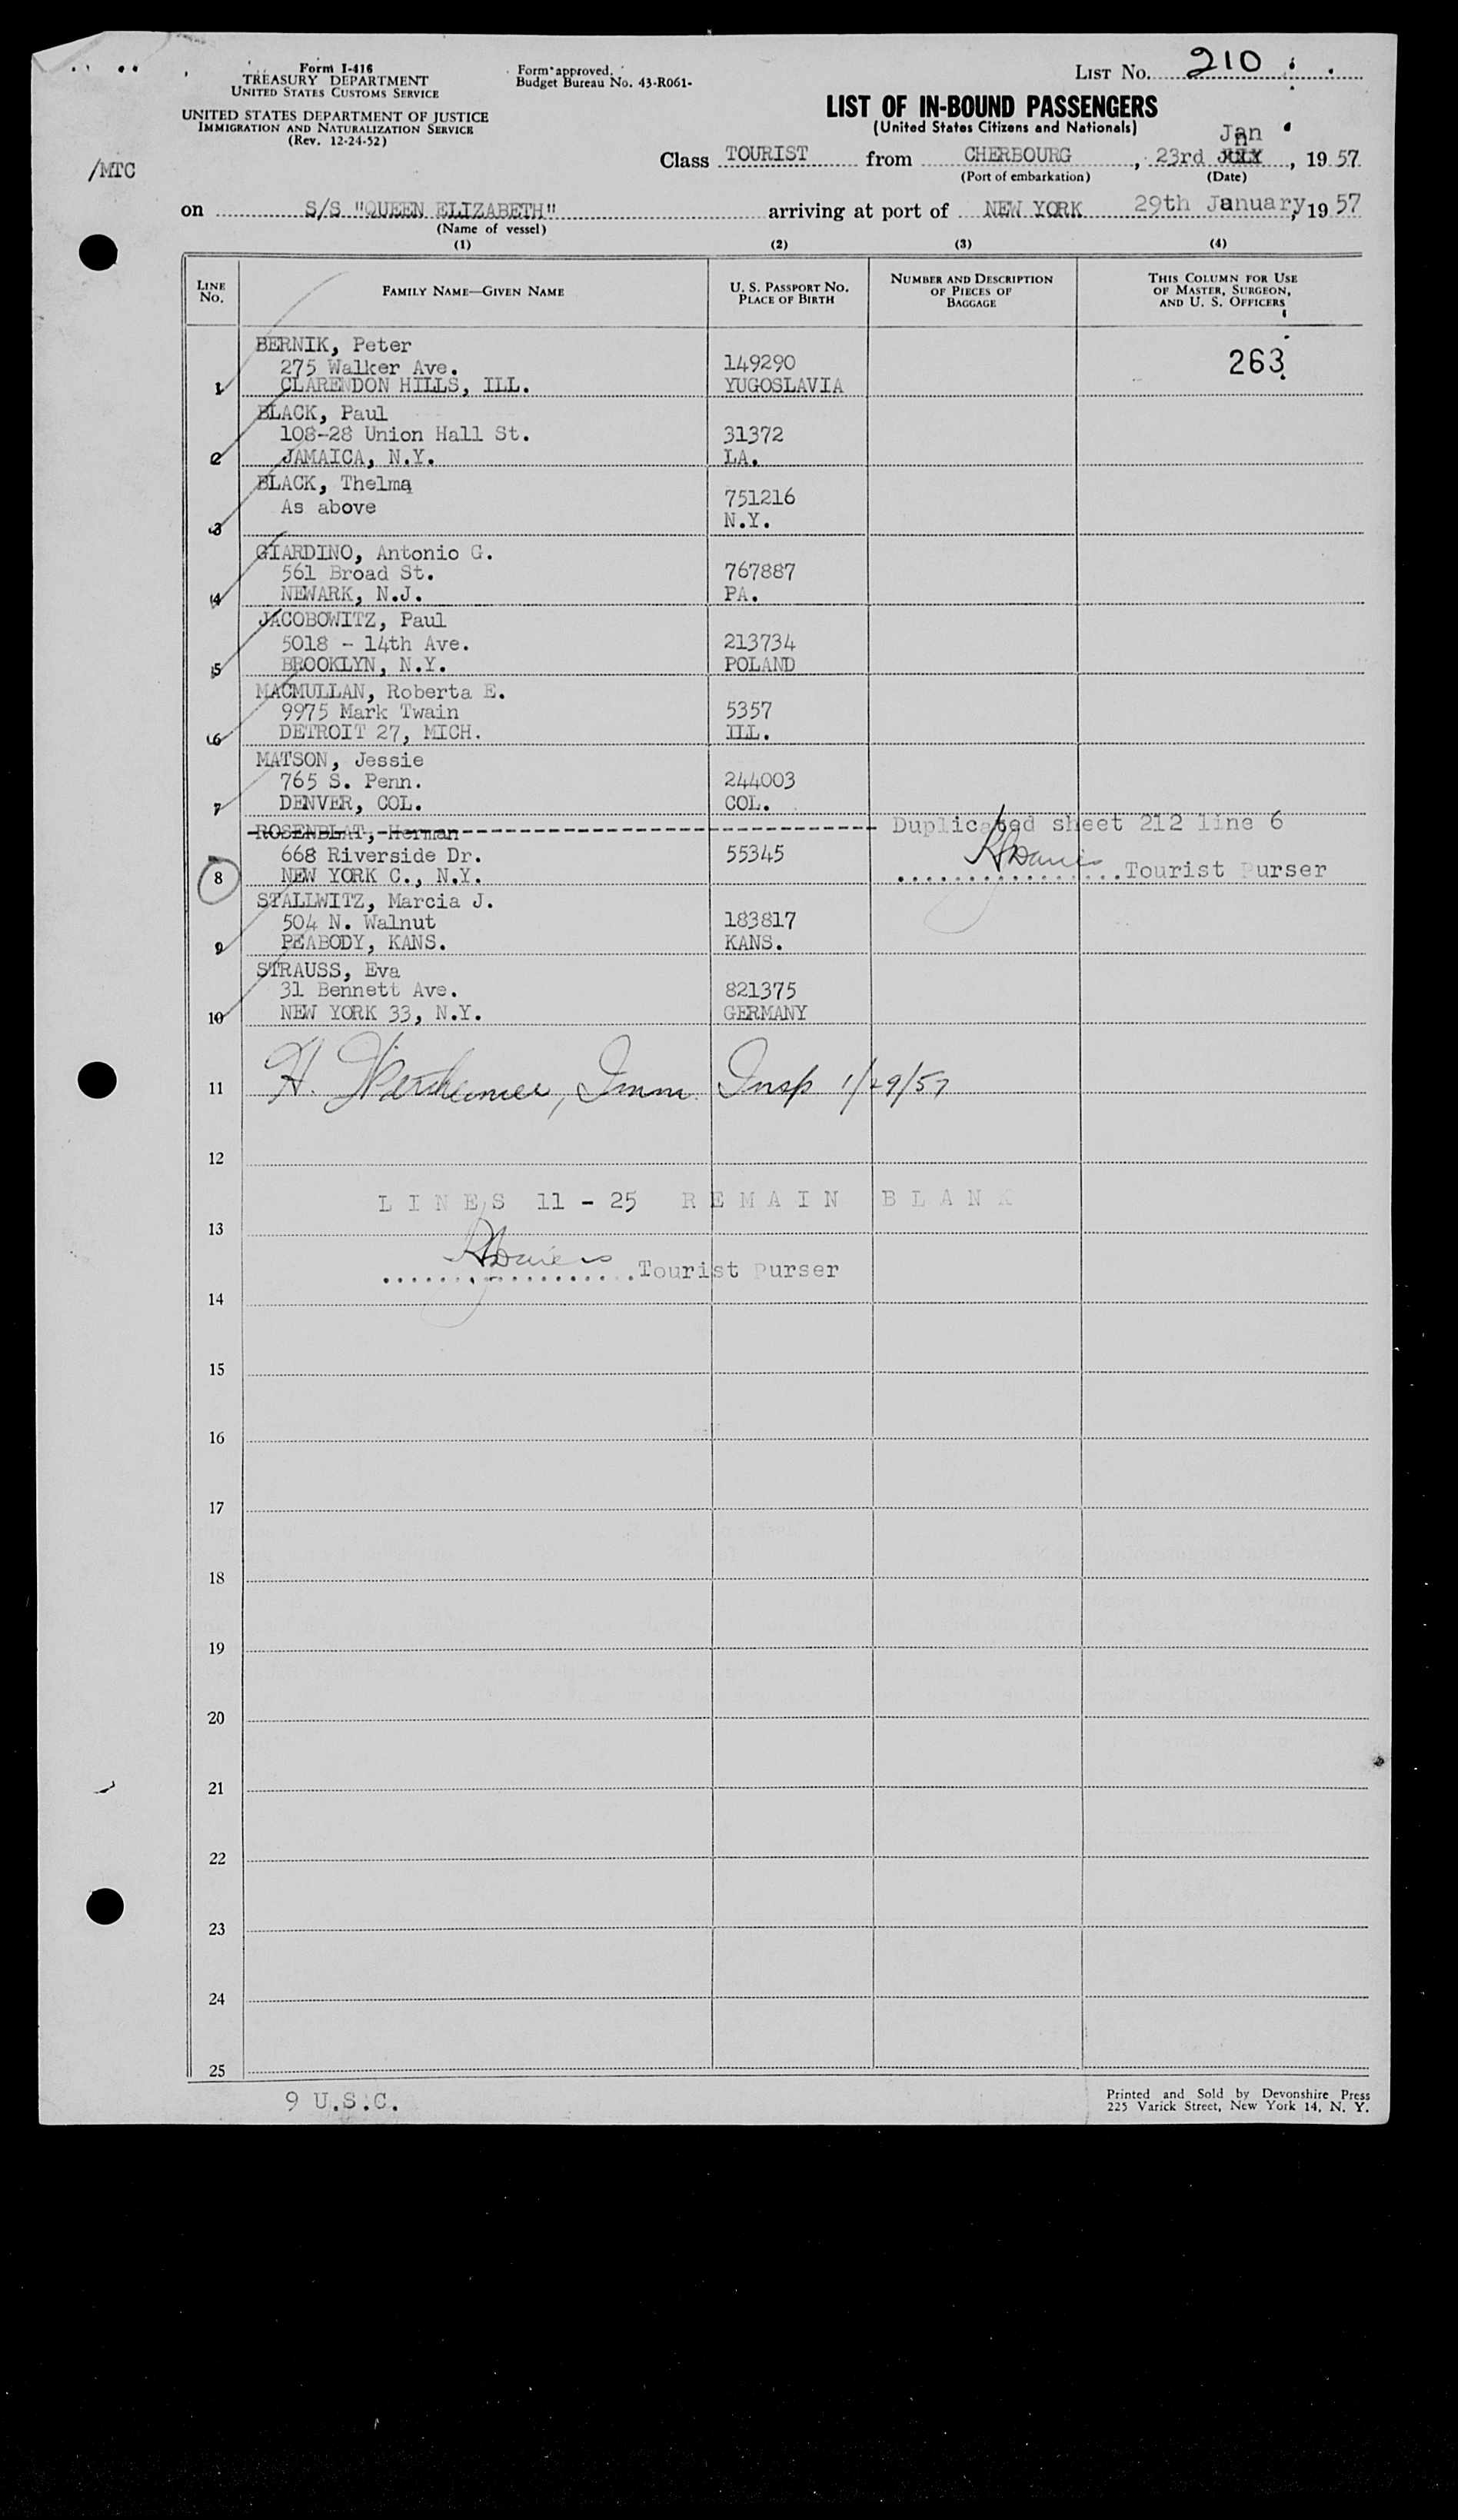 Form I-416
TREASURY DEPARTMENT
UNITED STATES CUSTOMS SERVICE
UNITED STATES DEPARTMENT OF JUSTICE
IMMIGRATION AND NATURALIZATION SERVICE
(Rev. 12-24-52)
Form approved.
Budget Bureau No. 43-R061-
LIST No. 210
LIST OF IN-BOUND PASSENGERS
(United States Citizens and Nationals)
/MTC
Jan
Class TOURIST from CHERBOURG, 23rd, 19 57
(Port of embarkation) (Date)
on S/S "QUEEN ELIZABETH" arriving at port of NEW YORK 29th January, 19 57
(Name of vessel)
(1) (2) (3) (4)
LINE No. FAMILY NAME—GIVEN NAME U. S. PASSPORT No. PLACE OF BIRTH NUMBER AND DESCRIPTION OF PIECES OF BAGGAGE THIS COLUMN FOR USE OF MASTER, SURGEON, AND U. S. OFFICERS
BERNIK, Peter 263
275 Walker Ave. 149290
1 CLARENDON HILLS, ILL. YUGOSLAVIA
BLACK, Paul
108-28 Union Hall St. 31372
2 JAMAICA, N.Y. LA.
BLACK, Thelma
As above 751216
3 N.Y.
GIARDINO, Antonio G.
561 Broad St. 767887
4 NEWARK, N.J. PA.
JACOBOWITZ, Paul
5018 - 14th Ave. 213734
5 BROOKLYN, N.Y. POLAND
MACMULLAN, Roberta E.
9975 Mark Twain 5357
6 DETROIT 27, MICH. ILL.
MATSON, Jessie
765 S. Penn. 244003
7 DENVER, COL. COL.
ROSENBLAT, Herman Duplicated sheet 212 line 6
668 Riverside Dr. 55345
8 NEW YORK C., N.Y. Tourist Purser
STALLWITZ, Marcia J.
504 N. Walnut 183817
9 PEABODY, KANS. KANS.
STRAUSS, Eva
31 Bennett Ave. 821375
10 NEW YORK 33, N.Y. GERMANY
11 H. Imm. Insp 1/29/57
12
LINES 11 - 25 REMAIN BLANK
13
Tourist Purser
14
15
16
17
18
19
20
21
22
23
24
25
9 U.S.C.
Printed and Sold by Devonshire Press
225 Varick Street, New York 14, N. Y.